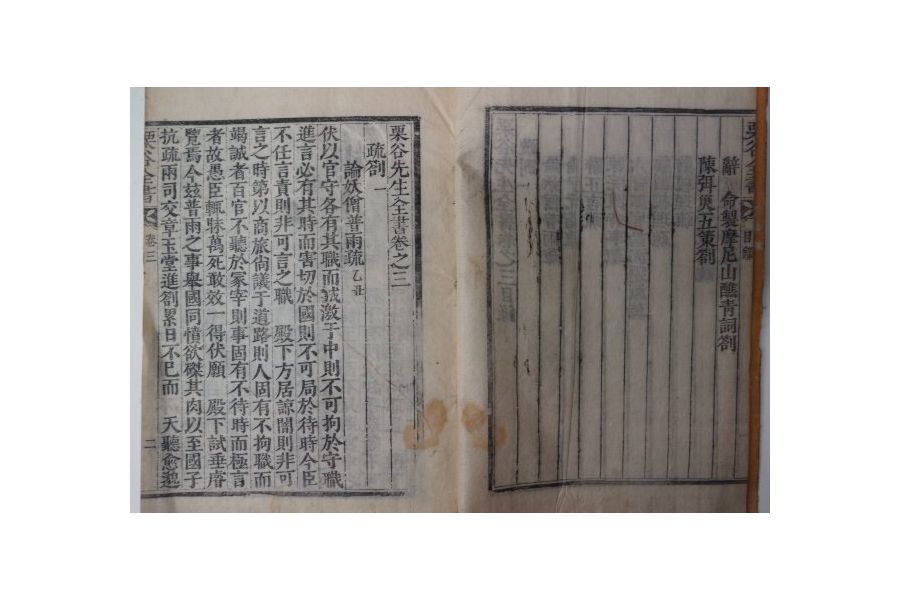 栗谷全書
目錄
辭 命製摩尼山醮青詞劄
陳弭災五策劄
栗谷先生全書卷之三
疏劄一
論妖僧普雨疏 乙丑
伏以官守各有其職而誠激于中則不可拘於守職
進言必有其時而害切於國則不可局於待時今臣
不任言責則非可言之職 殿下方居諒闇則非可
言之時第以商旅尙議于道路則人固有不拘職而
竭誠者百官不聽於冢宰則事固有不待時而極言
者故愚臣輒眛萬死敢效一得伏願 殿下試垂睿
覽焉今玆普雨之事擧國同憤欲磔其肉以至國子
抗疏兩司交章玉堂進劄累日不已而 天聽愈邈
栗谷全書
卷三
二